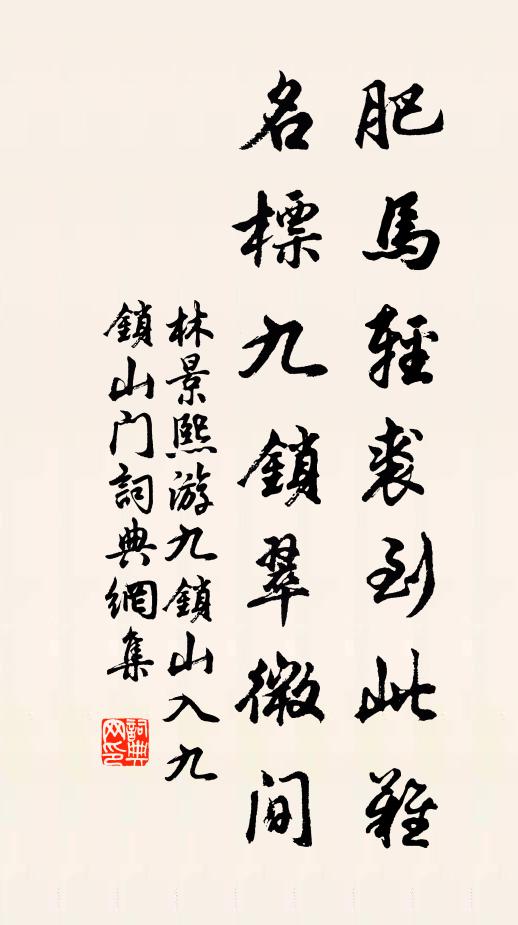 肥馬輕裘到此難
名標九鎖翠微間
林景熙游九鎖山入九
鎖山門詞典網集
詞典網印